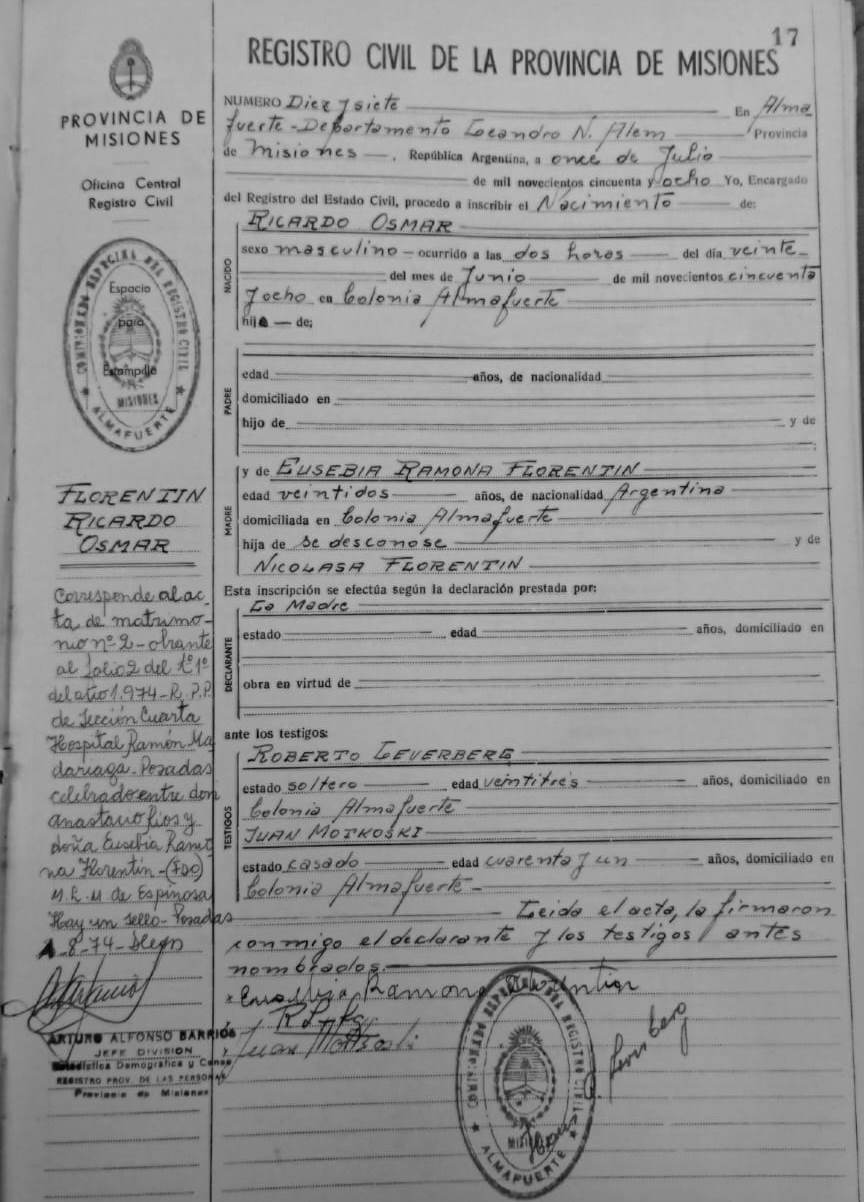 17
REGISTRO CIVIL DE LA PROVINCIA DE MISIONES
PROVINCIA DE
MISIONES
Oficina Central
Registro Civil
COMISIONADO ESPECIAL DEL REGISTRO CIVIL
Espacio
para
Estampilla
MISIONES
ALMAFUERTE
FLORENTIN
RICARDO
OSMAR
Corresponde al ac_
ta de matrimo-
nio nº 2 - obrante
al folio 2 del tº 1º
del año 1.974 - R.P.P.
de Sección Cuarta
Hospital Ramón Ma
dariaga. Posadas
celebrado entre don
Anastacio Rios y
doña Eusebia Ramo
na Florentin - (FDO)
M. E. M de Espinosa
Hay un sello - Posadas
8-74-
ARTURO ALFONSO BARRIOS
JEFE DIVISION
Estadistica Demográfica y Censo
REGISTRO PROV. DE LAS PERSONAS
Provincia de Misiones
NUMERO Diez y siete En Alma
fuerte - Departamento Leandro N. Alem Provincia
de Misiones. República Argentina, a once de Julio
de mil novecientos cincuenta y ocho Yo, Encargado
del Registro del Estado Civil, procedo a inscribir el Nacimiento de:
NACIDO
RICARDO OSMAR
sexo masculino - ocurrido a las dos horas del día veinte
del mes de Junio de mil novecientos cincuenta
y ocho en Colonia Almafuerte
hijo de;
PADRE
edad años, de nacionalidad
domiciliado en
hijo de y de
MADRE
y de EUSEBIA RAMONA FLORENTIN
edad veintidos años, de nacionalidad Argentina
domiciliada en Colonia Almafuerte
hija de se desconose y de
NICOLASA FLORENTIN
Esta inscripción se efectúa según la declaración prestada por:
DECLARANTE
La Madre
estado edad años, domiciliado en
obra en virtud de
ante los testigos:
TESTIGOS
ROBERTO LEVERBERG
estado soltero edad veintitrés años, domiciliado en
Colonia Almafuerte
JUAN MOTKOSKI
estado casado edad cuarenta y un años, domiciliado en
Colonia Almafuerte -
Leida el acta, la firmaron
conmigo el declarante y los testigos antes
nombrados.
Eusebia Ramona Florentin
Juan Motkoski
COMISIONADO ESPECIAL DEL REGISTRO CIVIL
MISIONES
ALMAFUERTE